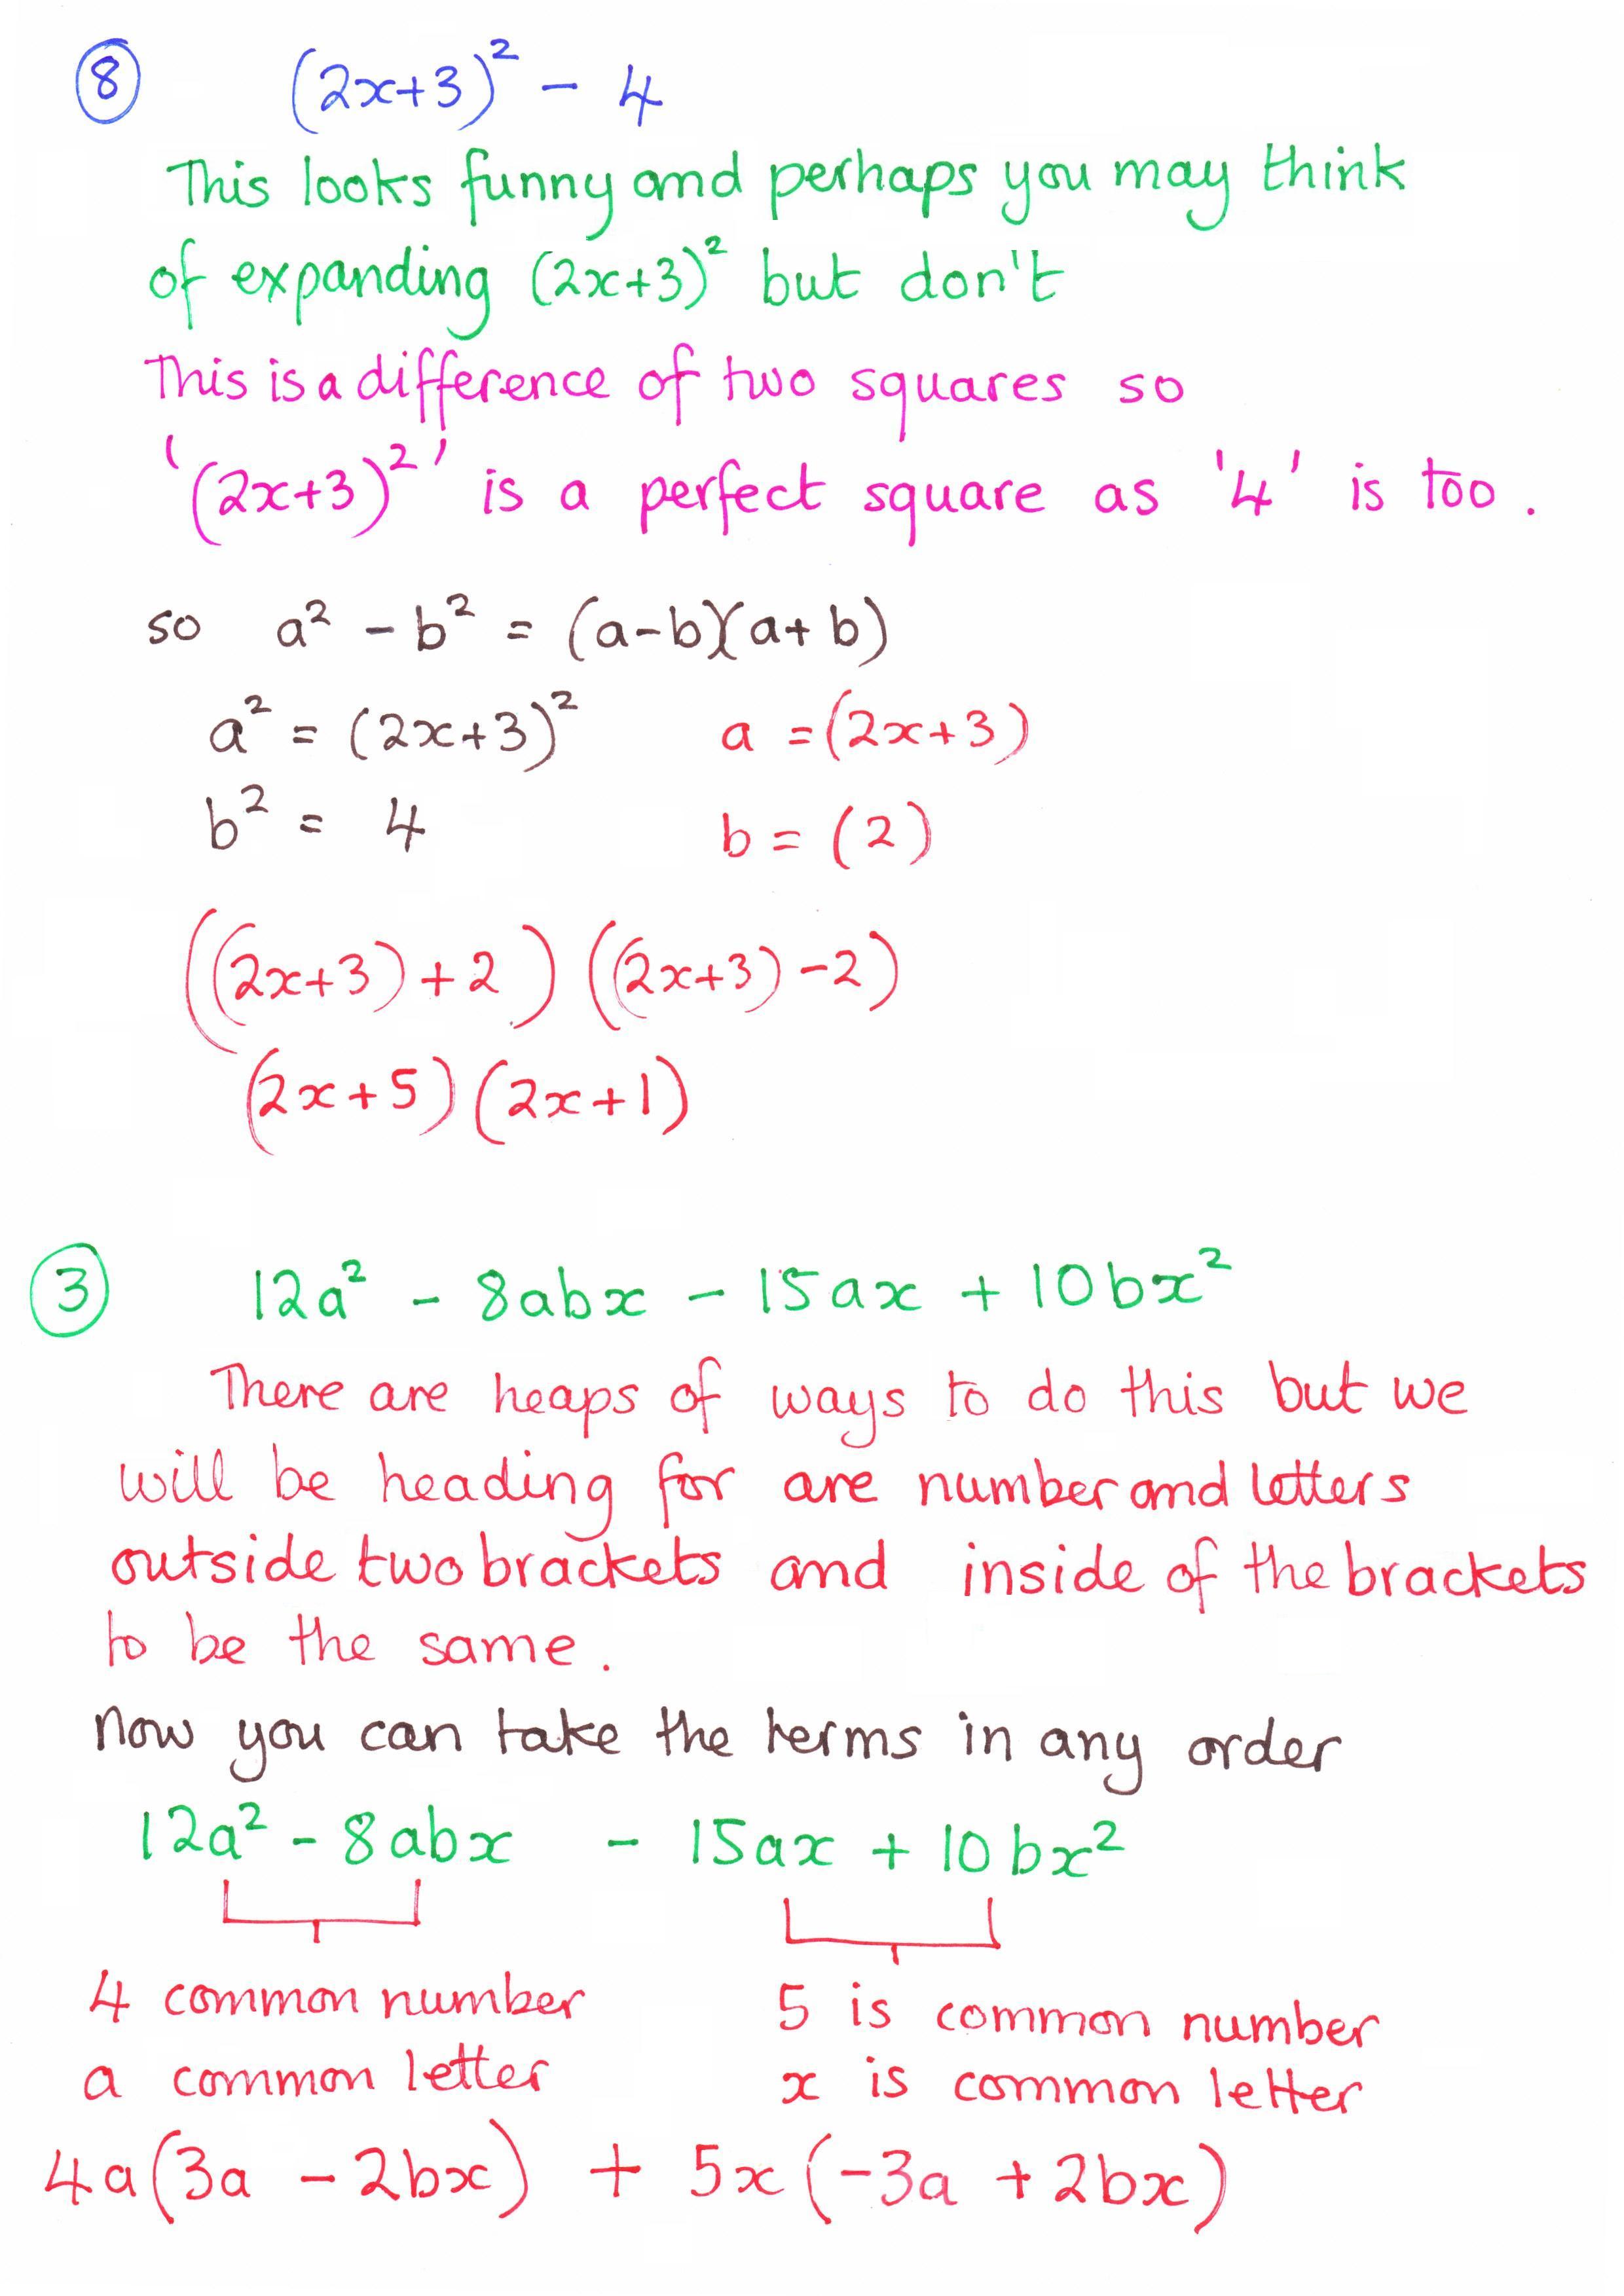 8 (2x+3)² - 4
This looks funny and perhaps you may think
of expanding (2x+3)² but don't
This is a difference of two squares so
'(2x+3)²' is a perfect square as '4' is too.
so a² - b² = (a-b)(a+b)
a² = (2x+3)² a = (2x+3)
b² = 4 b = (2)
((2x+3)+2) ((2x+3)-2)
(2x+5)(2x+1)
3 12a² - 8abx - 15ax + 10bx²
There are heaps of ways to do this but we
will be heading for are number and letters
outside two brackets and inside of the brackets
to be the same.
Now you can take the terms in any order
12a² - 8abx - 15ax + 10bx²
4 common number 5 is common number
a common letter x is common letter
4a(3a - 2bx) + 5x(-3a + 2bx)